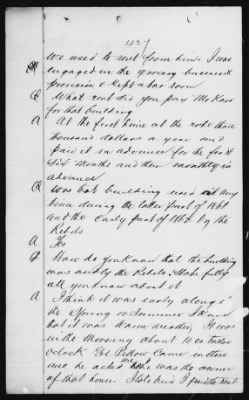 427
we used to rent from him. I was
engaged in the grocery business
provision & kept a bar room
Q What rent did you pay McKaw
for that building
A At the first time at the rate three
thousand dollars a year and
paid it in advance for the first
six months and then monthly in
advance
Q Was that building used at any
time during the latter part of 1861
and the early part of 1862 by the
Rebels
A Yes
Q How do you know that the building
was used by the Rebels. State fully
all you know about it
A I think it was early along in
the Spring or Summer I know
that it was warm weather, it was
in the morning about 10 or eleven
oclock Gel Pillow came in there
and he asked me who was the owner
of that house. I told him I paid the rent